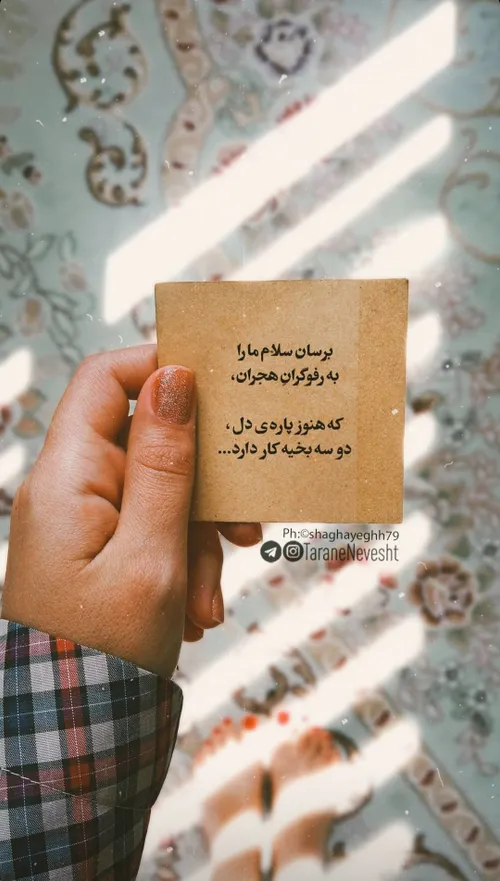 برسان سلام ما را
به رفوگرانِ هجران،
که هنوز پاره‌ی دل،
دو سه بخیه کار دارد...
Ph:©shaghayeghh79
TaraneNevesht